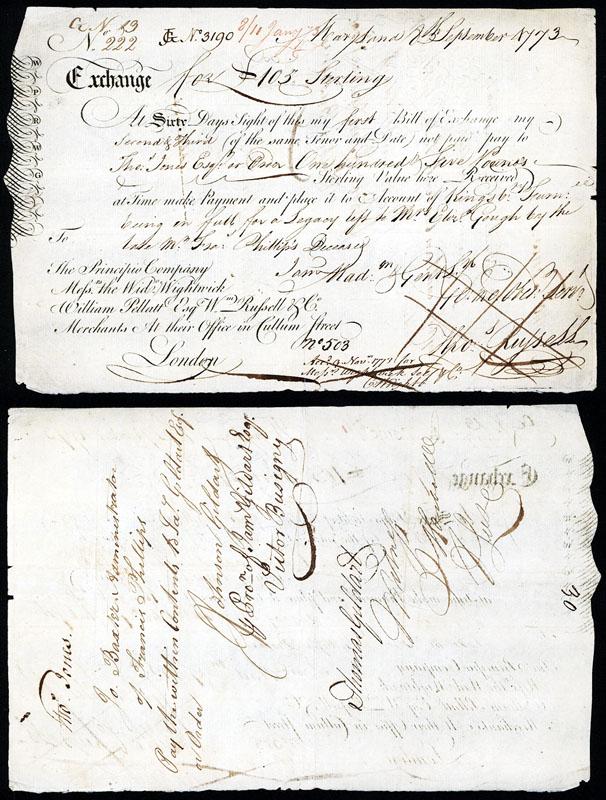 N. 222
N. 3190
Maryland 8th September 1773
Exchange for £105 Sterling
At Sixty Days Sight of this my first Bill of Exchange my
second & third (of the same Tenor and Date) not paid pay to
Thos. Jones Esqr. or Order One hundred & five Pounds
Sterling Value here Received
at Time make Payment and place it to Account of Kings by Furn
being in full for a Legacy left to Mrs Elizr. Gough by the
late Mr. Fras. Phillips Deceased
To
I am Mad.m & Gentn.
The Principio Company
Messrs. the Wid. Wightwick
William Pellatt Esq Wm. Russell & Co.
Merchants At their Office in Cullum Street
London
No 503
Thos. Russell
Exchange
30
Thos. Jones.
Jo. Baxter Administrator
of Francis Phillips
Pay the within Contents to Ja. Gildart Esq.
or Order
Johnson Gildart
Pro. of Jam. Gildart Esq.
Victor Busigny
Thomas Gildart